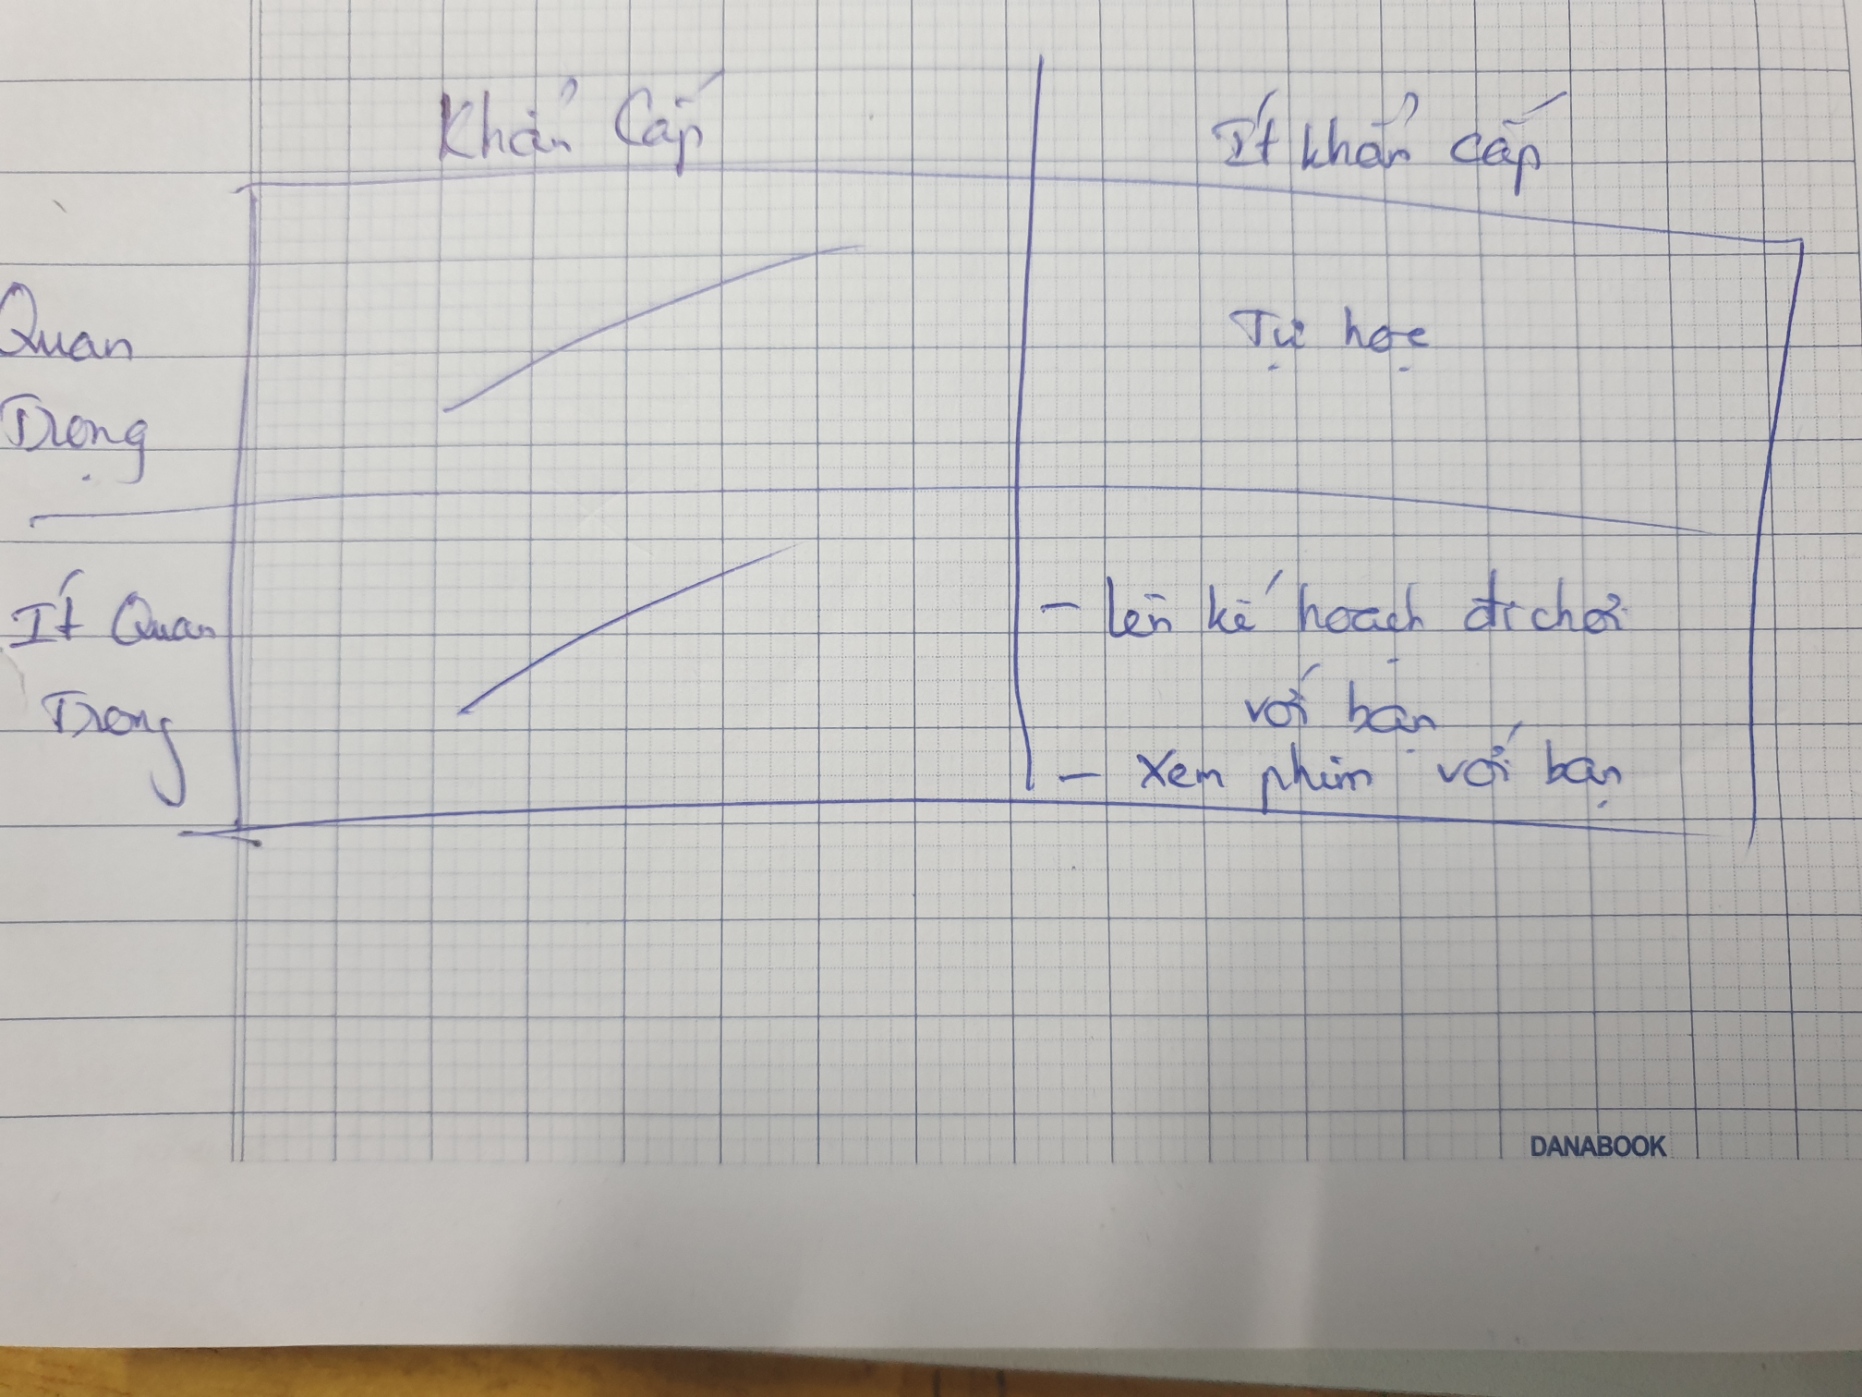 Khẩn Cấp
Ít khẩn cấp
Quan
Trọng
Tự học
Ít Quan
Trọng
- lên kế hoạch đi chơi
với bạn
- Xem phim với bạn
DANABOOK